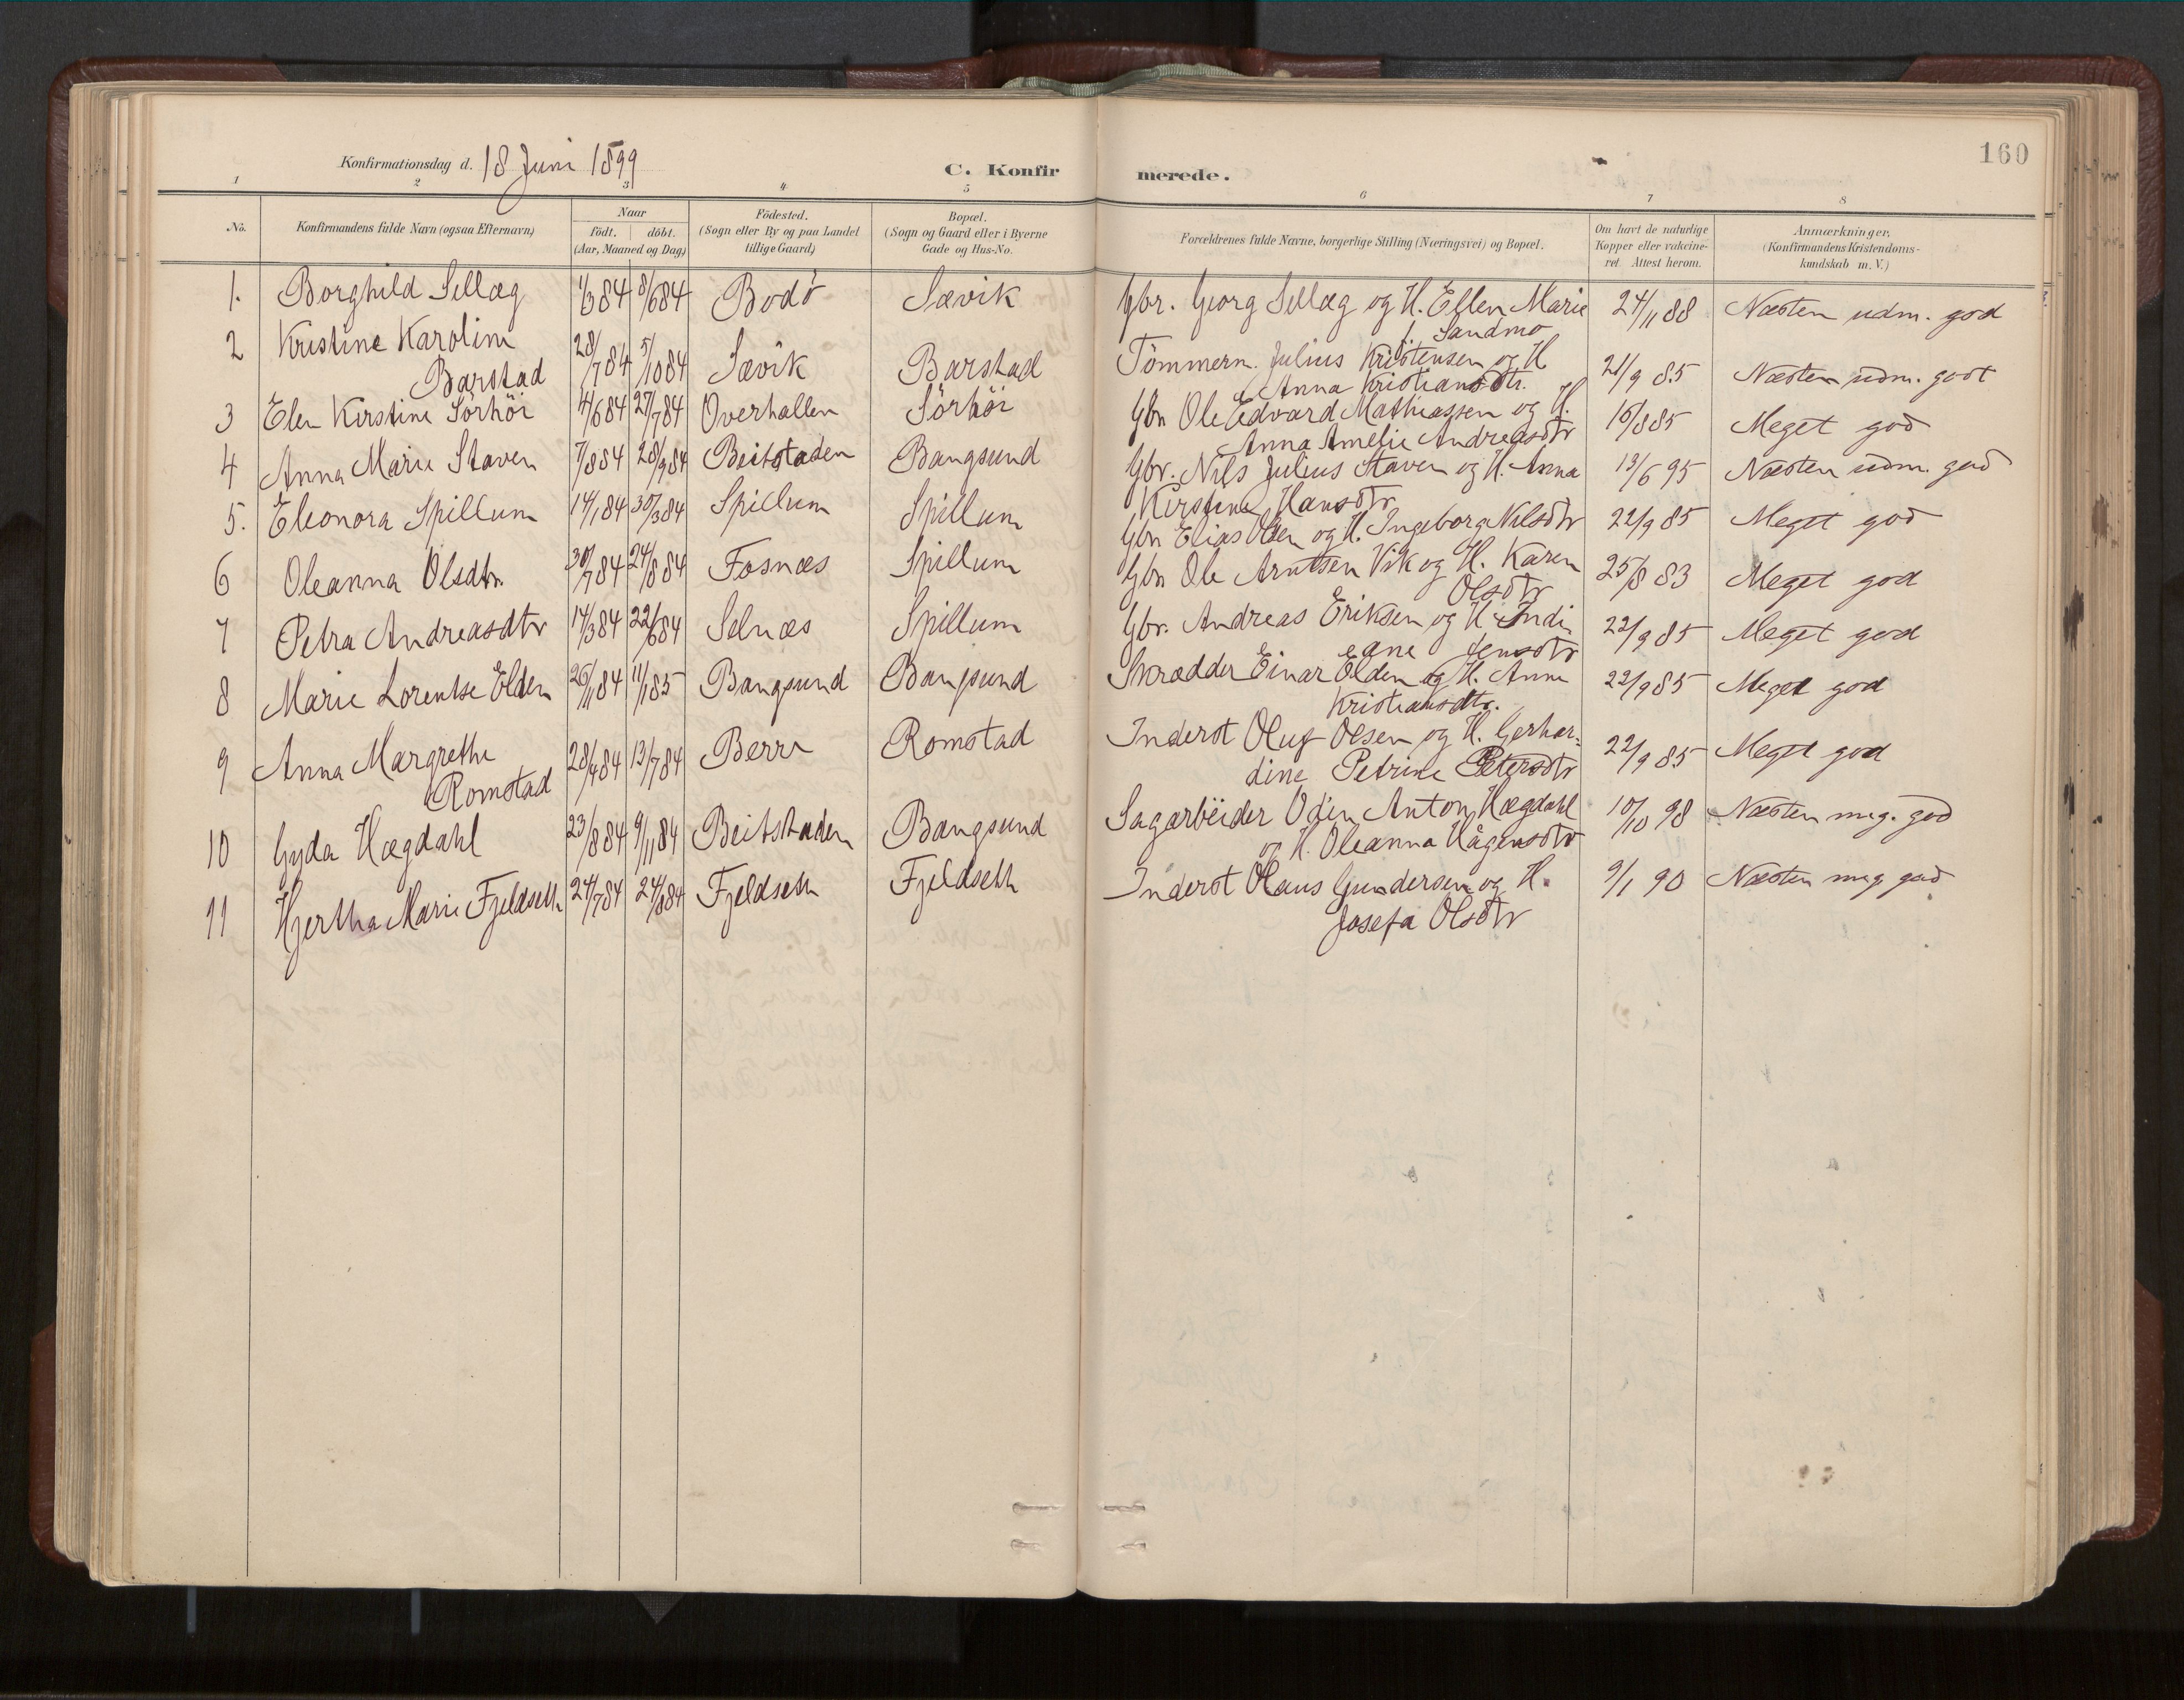 160
Konfirmationsdag d. 18 Juni 1899
C. Konfirmerede.
1 2 3 4 5 6 7 8
No. Konfirmandens fulde Navn (ogsaa Efternavn) Naar födt. döbt. (Aar, Maaned og Dag) Födested. (Sogn eller By og paa Landet tillige Gaard) Bopæl. (Sogn og Gaard eller i Byerne Gade og Hus-No. Forældrenes fulde Navne, borgerlige Stilling (Næringsvei) og Bopæl. Om havt de naturlige Kopper eller vakcineret Attest herom. Anmærkninger, (Konfirmandens Kristendomskundskab m. V.)
1. Borghild Sellæg 1/3 84 8/6 84 Bodö Sævik Gbr. Georg Sellæg og H. Ellen Marie 24/11 88 Næsten udm. god
f. Sandmo
2 Kristine Karoline 28/7 84 5/10 84 Sævik Barstad Tömmerm. Julius Kristensen og H 21/9 85 Næsten udm. godt
Barstad Anna Kristiansdtr.
3 Elen Kirstine Sörhöi 4/6 84 27/7 84 Overhallen Sörhöi Gbr Ole Edvard Mathiassen og H. 16/8 85 Meget god
Anna Amelie Andreasdtr
4 Anna Marie Staven 7/8 84 28/9 84 Beitstaden Bangsund Gbr. Nils Julius Staven og H. Anna 13/6 95 Næsten udm. god
Kirstine Hansdtr
5. Eleonora Spillum 14/1 84 30/3 84 Spillum Spillum Gbr Elias Olsen og H. Ingeborg Nilsdtr 22/9 85 Meget god
6 Oleanna Olsdtr. 30/7 84 24/8 84 Fosnæs Spillum Gbr Ole Arntsen Vik og H. Karen 25/8 83 Meget god
Olsdtr
7 Petra Andreasdtr 14/3 84 22/6 84 Selnæs Spillum Gbr. Andreas Eriksen og H Indi 22/9 85 Meget god
eane Jensdtr
8 Marie Lorentse Elden 26/11 84 11/1 85 Bangsund Bangsund Skrædder Einar Elden og H. Anne 22/9 85 Meget god
Kristiansdtr.
9 Anna Margrethe 28/4 84 13/7 84 Berre Romstad Inderst Oluf Olsen og H. Gerhar= 22/9 85 Meget god
Romstad dine Petrine Petersdtr
10 Gyda Hægdahl 23/8 84 9/11 84 Beitstaden Bangsund Sagarbeider Odin Anton Hægdahl 10/10 98 Næsten meg. god
og H. Oleanna Hågensdtr
11 Hjertha Marie Fjeldseth 24/7 84 24/8 84 Fjeldseth Fjeldseth Inderst Olaus Gundersen og H. 9/1 90 Næsten meg god
Josefa Olsdtr